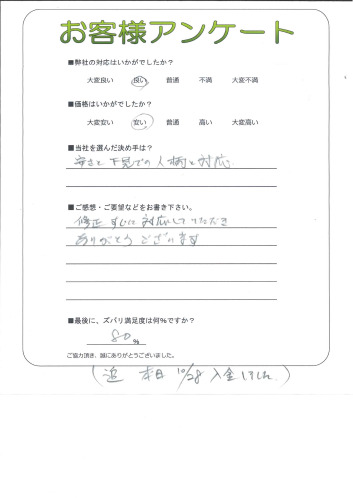 お客様アンケート
■弊社の対応はいかがでしたか？
大変良い 良い 普通 不満 大変不満
■価格はいかがでしたか？
大変安い 安い 普通 高い 大変高い
■当社を選んだ決め手は？
安さと下見での人柄と対応
■ご感想・ご要望などをお書き下さい。
修正すぐに対応していただき
ありがとうございます
■最後に、ズバリ満足度は何%ですか？
80 %
ご協力頂き、誠にありがとうございました。
(追 本日 10/28 入金しました。)